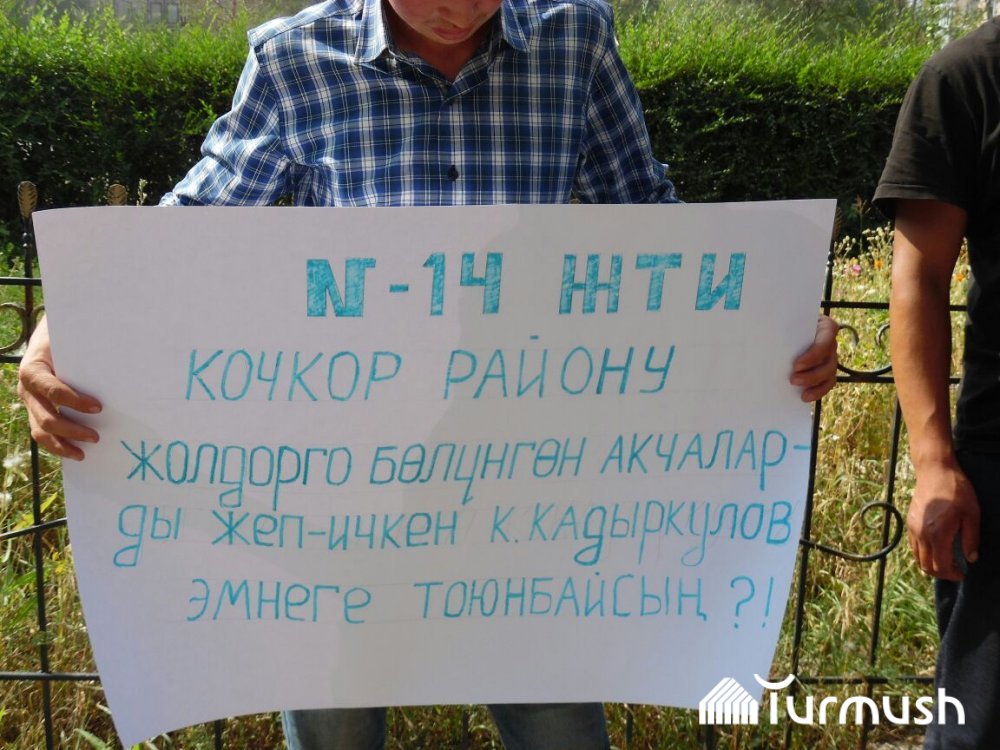 №-14 ЖТИ
КОЧКОР РАЙОНУ
ЖОЛДОРГО БӨЛҮНГӨН АКЧАЛАР-
ДЫ ЖЕП-ИЧКЕН К.КАДЫРКУЛОВ
ЭМНЕГЕ ТОЮНБАЙСЫҢ ?!
Turmush